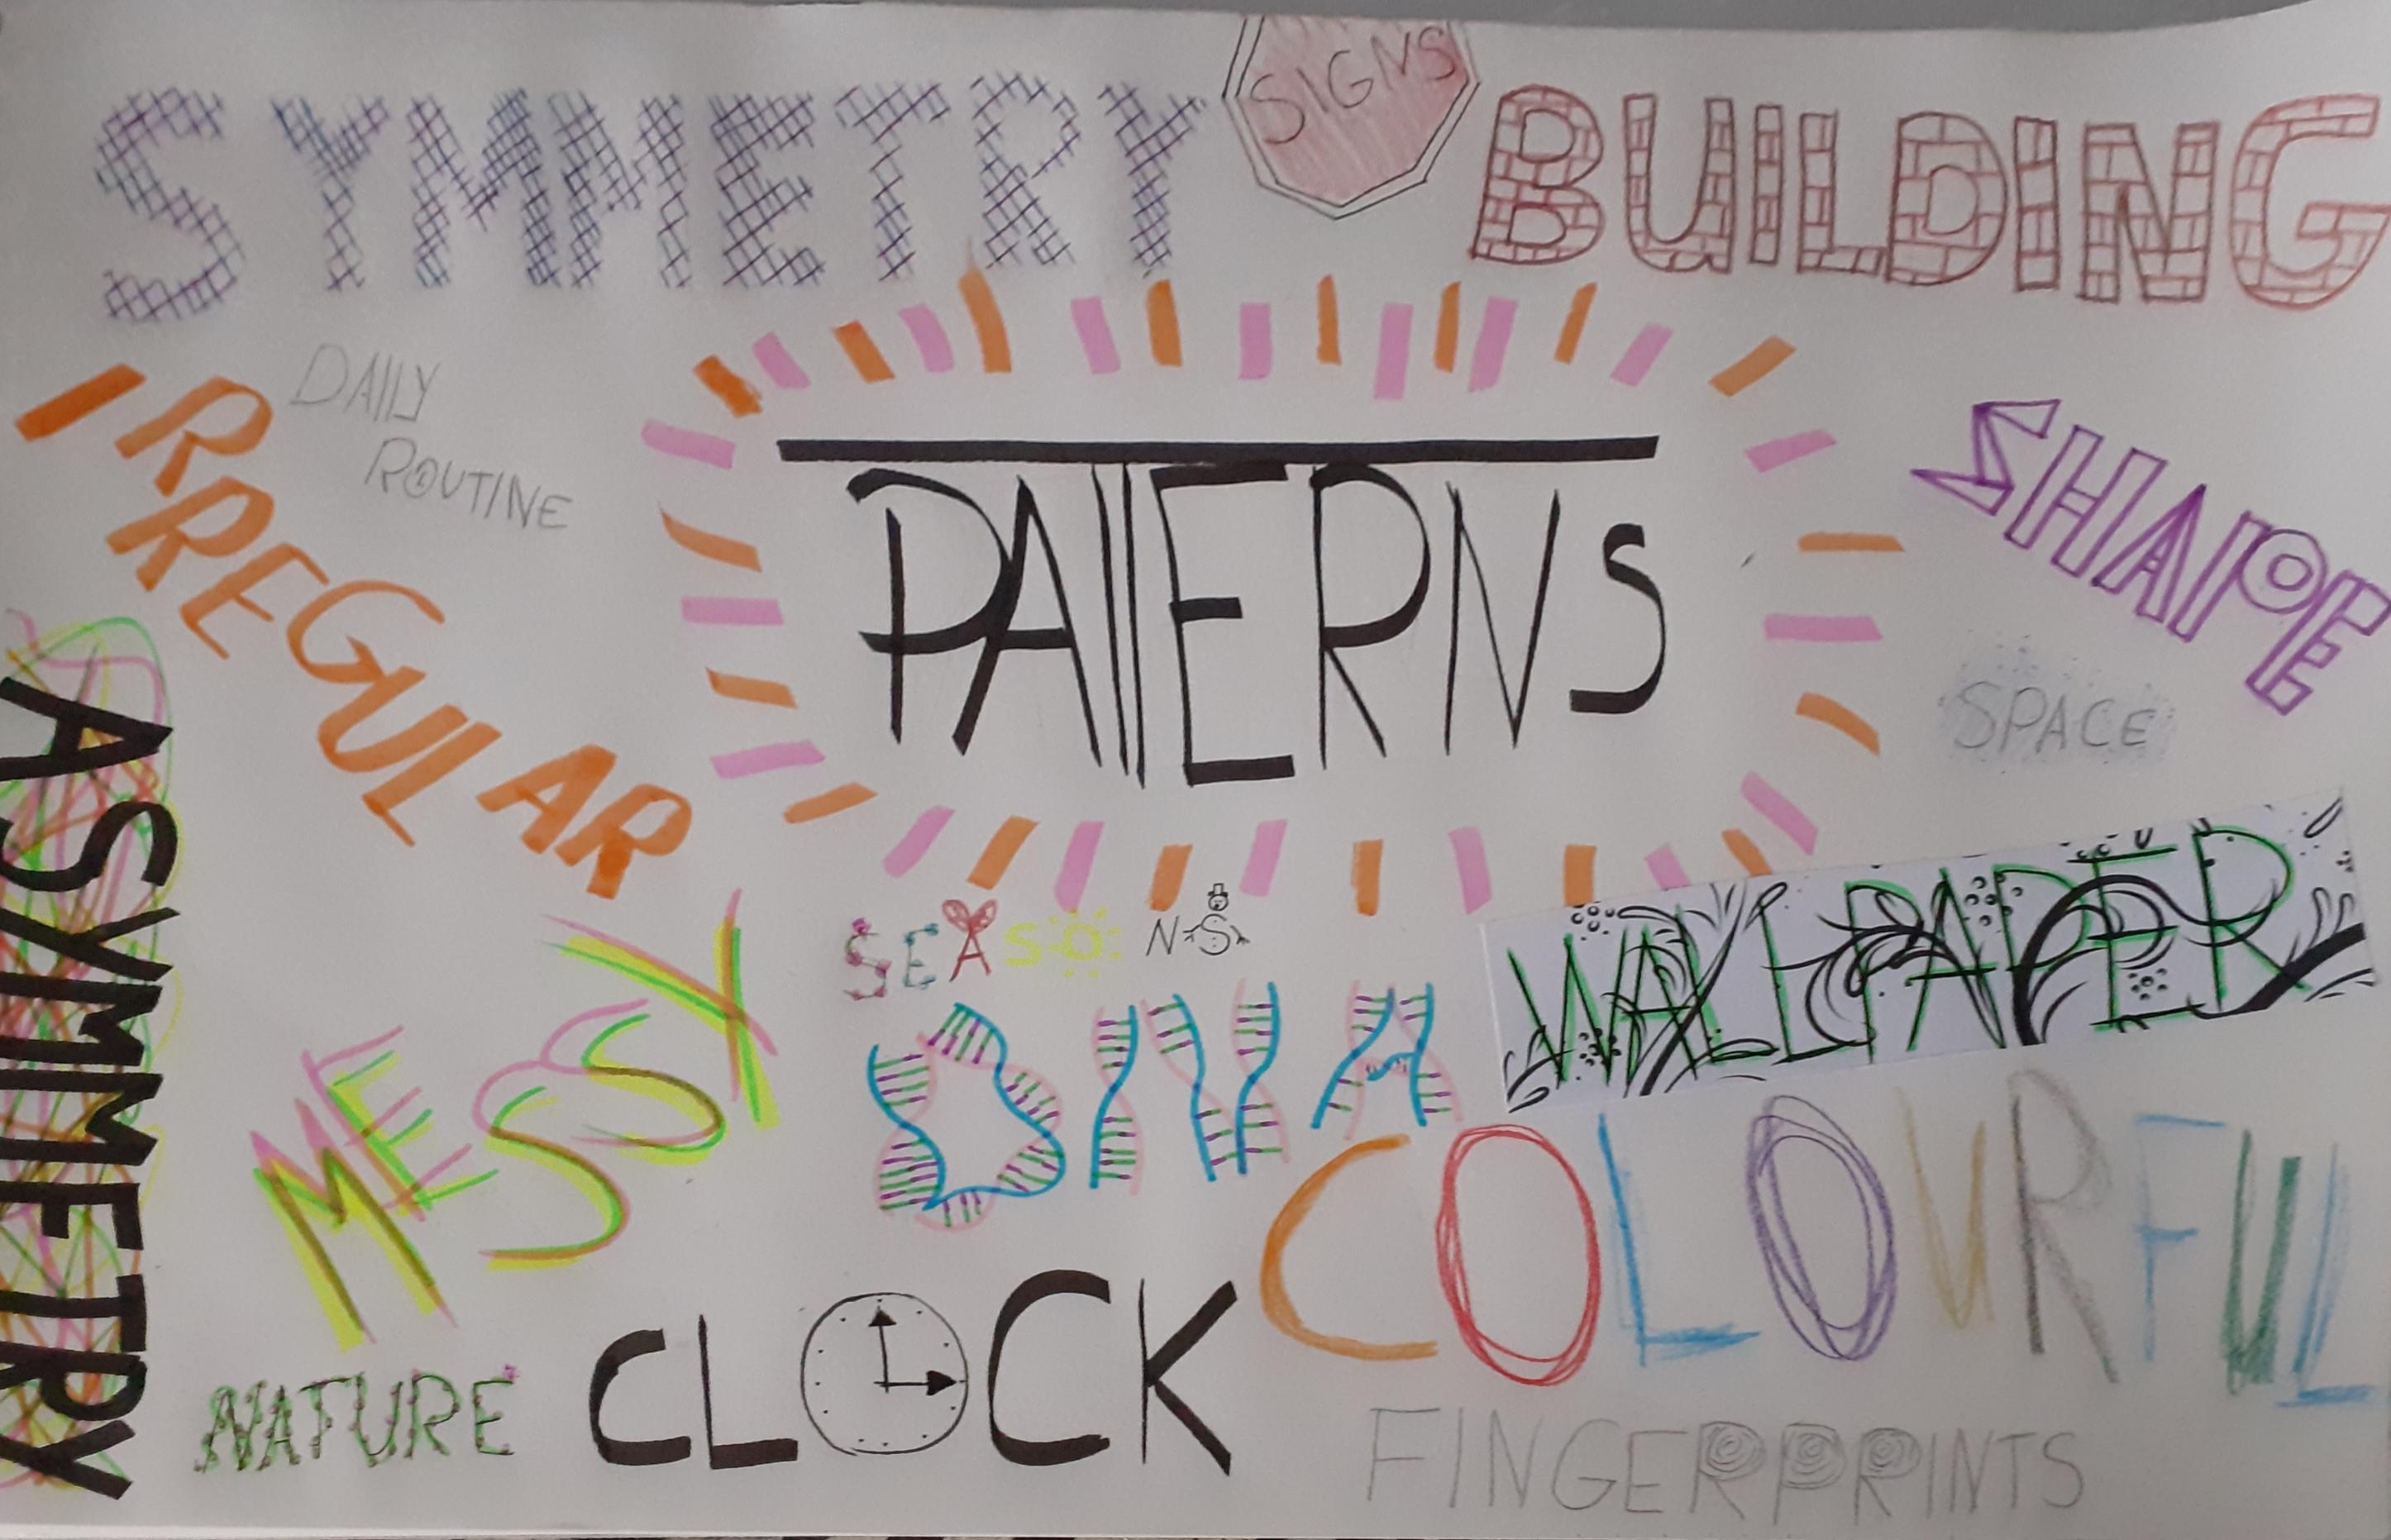 SYMMETRY
SIGNS
BUILDING
DAILY
ROUTINE
IRREGULAR
PATTERNS
SHAPE
SPACE
ASYMMETRY
MESSY
SEASONS
WALLPAPER
DNA
COLOURFUL
NATURE
CLOCK
FINGERPRINTS